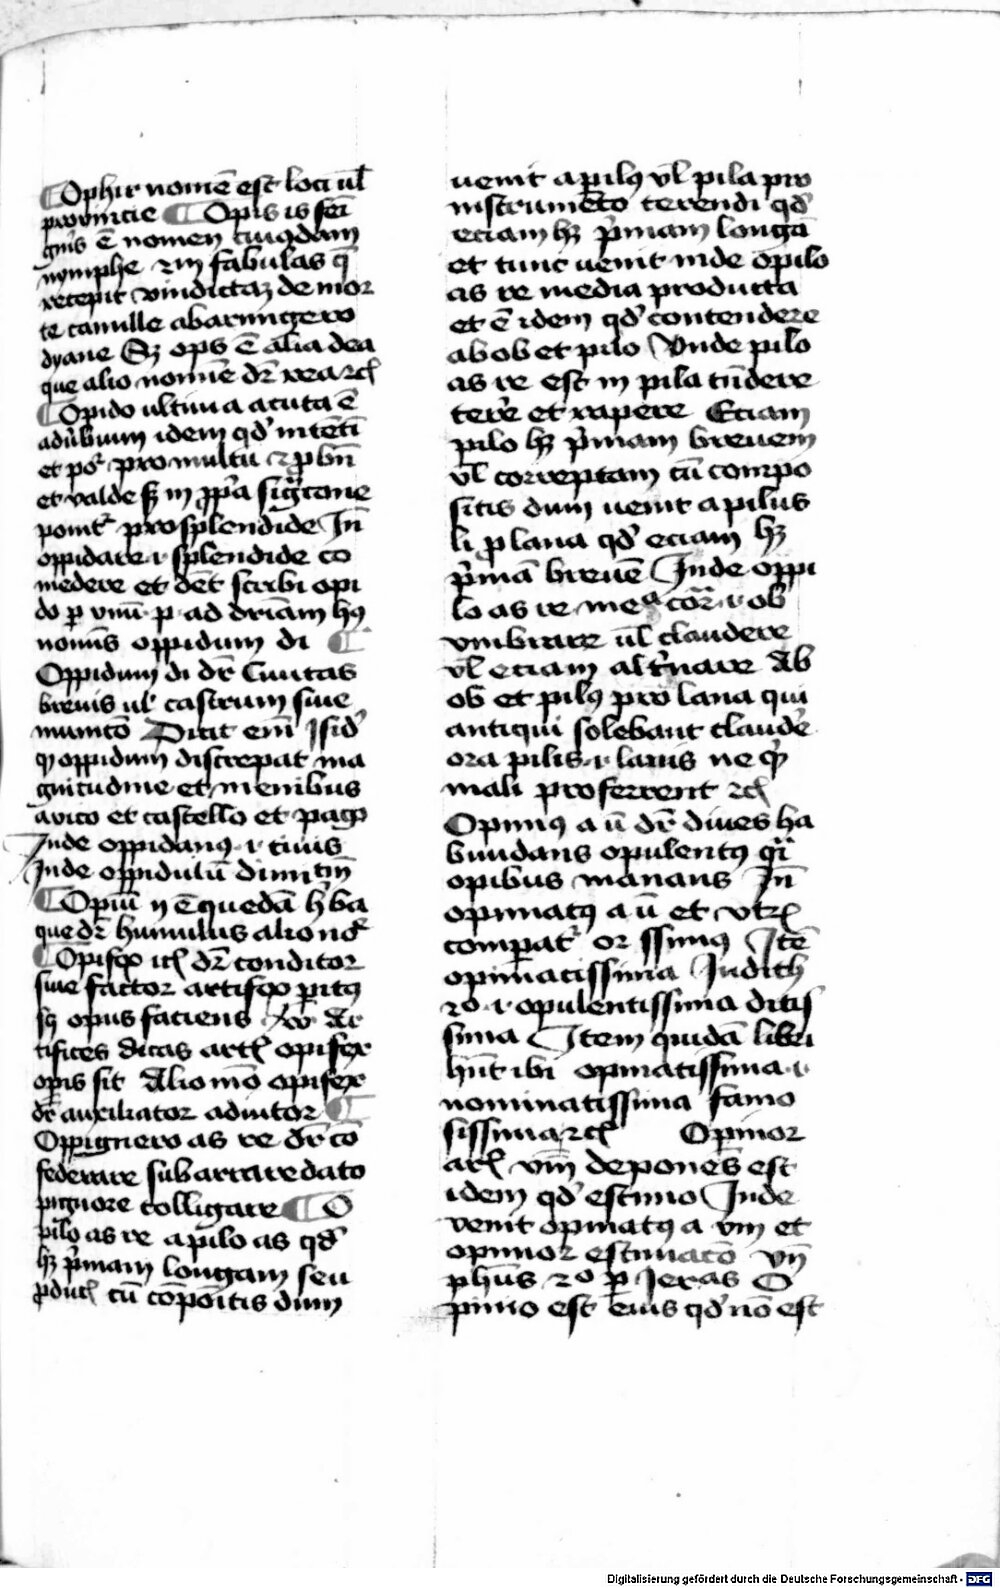 ¶ Ophir nomē est loci ul̄
prouincie ¶ Opis is fēi
gn̄is ē nomen cuiqdam
nymphe 2 in fabulas q̄
recepit vindictaꝫ de mor
te camille ab aruigero
dyane Sꝫ ops ē alia dea
que alio nomīe dr̄ rea rc̄
¶ Opido ultima acuta ē
adūbium idem qd̓ intētī
et pōr pro multū 2 p bn̄
et valde sꝫ in ꝓpa sigtione
ponit̄ pro splendide Jn̄
oppidare .i. splendide co
medere et dēt scribi opi
do p vnū .p. ad driām hꝰ
nomis oppidum di ¶
Oppidum di dr̄ Ciuitas
breuis ul̓ castrum siue
municō Dicit em̄ Jsid̓
qꝫ oppidum discrepat ma
gnitudine et menibus
a vico et castello et pago
Jnde oppidanꝰ .i. ciuis
Jnde oppidulū diminm̄
¶ Opiū ij ē quedā hꝰba
que dr̄ humulus alio nō
¶ Opifex icꝭ dr̄ conditor
siue factor artifex pitꝰ
sꝫ opus faciens
tifices dicas artꝭ opifex
opis sit Alio mō opifex
dr̄ auxiliator adiutor ¶
Oppignero as re dr̄ cō
federare subarrare dato
pignore colligare ¶ O
pilo as re a pilo as qd̓
hꝫ p̄mam longam seu
ꝓductꝭ cū cōpōitis dum
uenit a pilꝰ vl̄ pila pro
instrumēto terendi qd̓
eciam hꝫ p̄mam longā
et tunc uenit inde opilo
as re media producta
et ē idem qd̓ contendere
ab ob et pilo Vnde pilo
as re est in pila tūdere
terē et rapere Eciam
pilo hꝫ p̄mam breuem
vl̄ correptam cū compo
sitis dum uenit a pilus
li p lana qd̓ eciam hꝫ
p̄mā breuē Jnde oppi
lo as re meᵃ cor̄ .i. ob
vmbrare ul̄ claudere
vl̄ eciam alt̄nare Ab
ob et pilꝰ pro lana qui
antiqui solebant claudē
ora pilis .i. lanis ne qꝫ
mali proferrent rcꝭ
Opimꝰ a ū dr̄ diues ha
bundans opulentꝰ qͥ
opibus manans Jn̄
opimatꝰ a ū et vtrꝫ
comperat̄ or ssimꝰ Jtē
opimatissima Judith
20 .i. opulentissima ditis
sima Jtem quidā libri
hn̄t ibi opinatissima .i.
nominatissima famo
sissima rcꝭ Opinor
arꝭ vim̄ deponēs est
idem qd̓ estimo Jnde
venit opinatꝰ a vm et
opinor estimacō vn̄
ph̄us 2° p Jeras O
pinio est eius qd̓ nō est
Digitalisierung gefördert durch die Deutsche Forschungsgemeinschaft - DFG